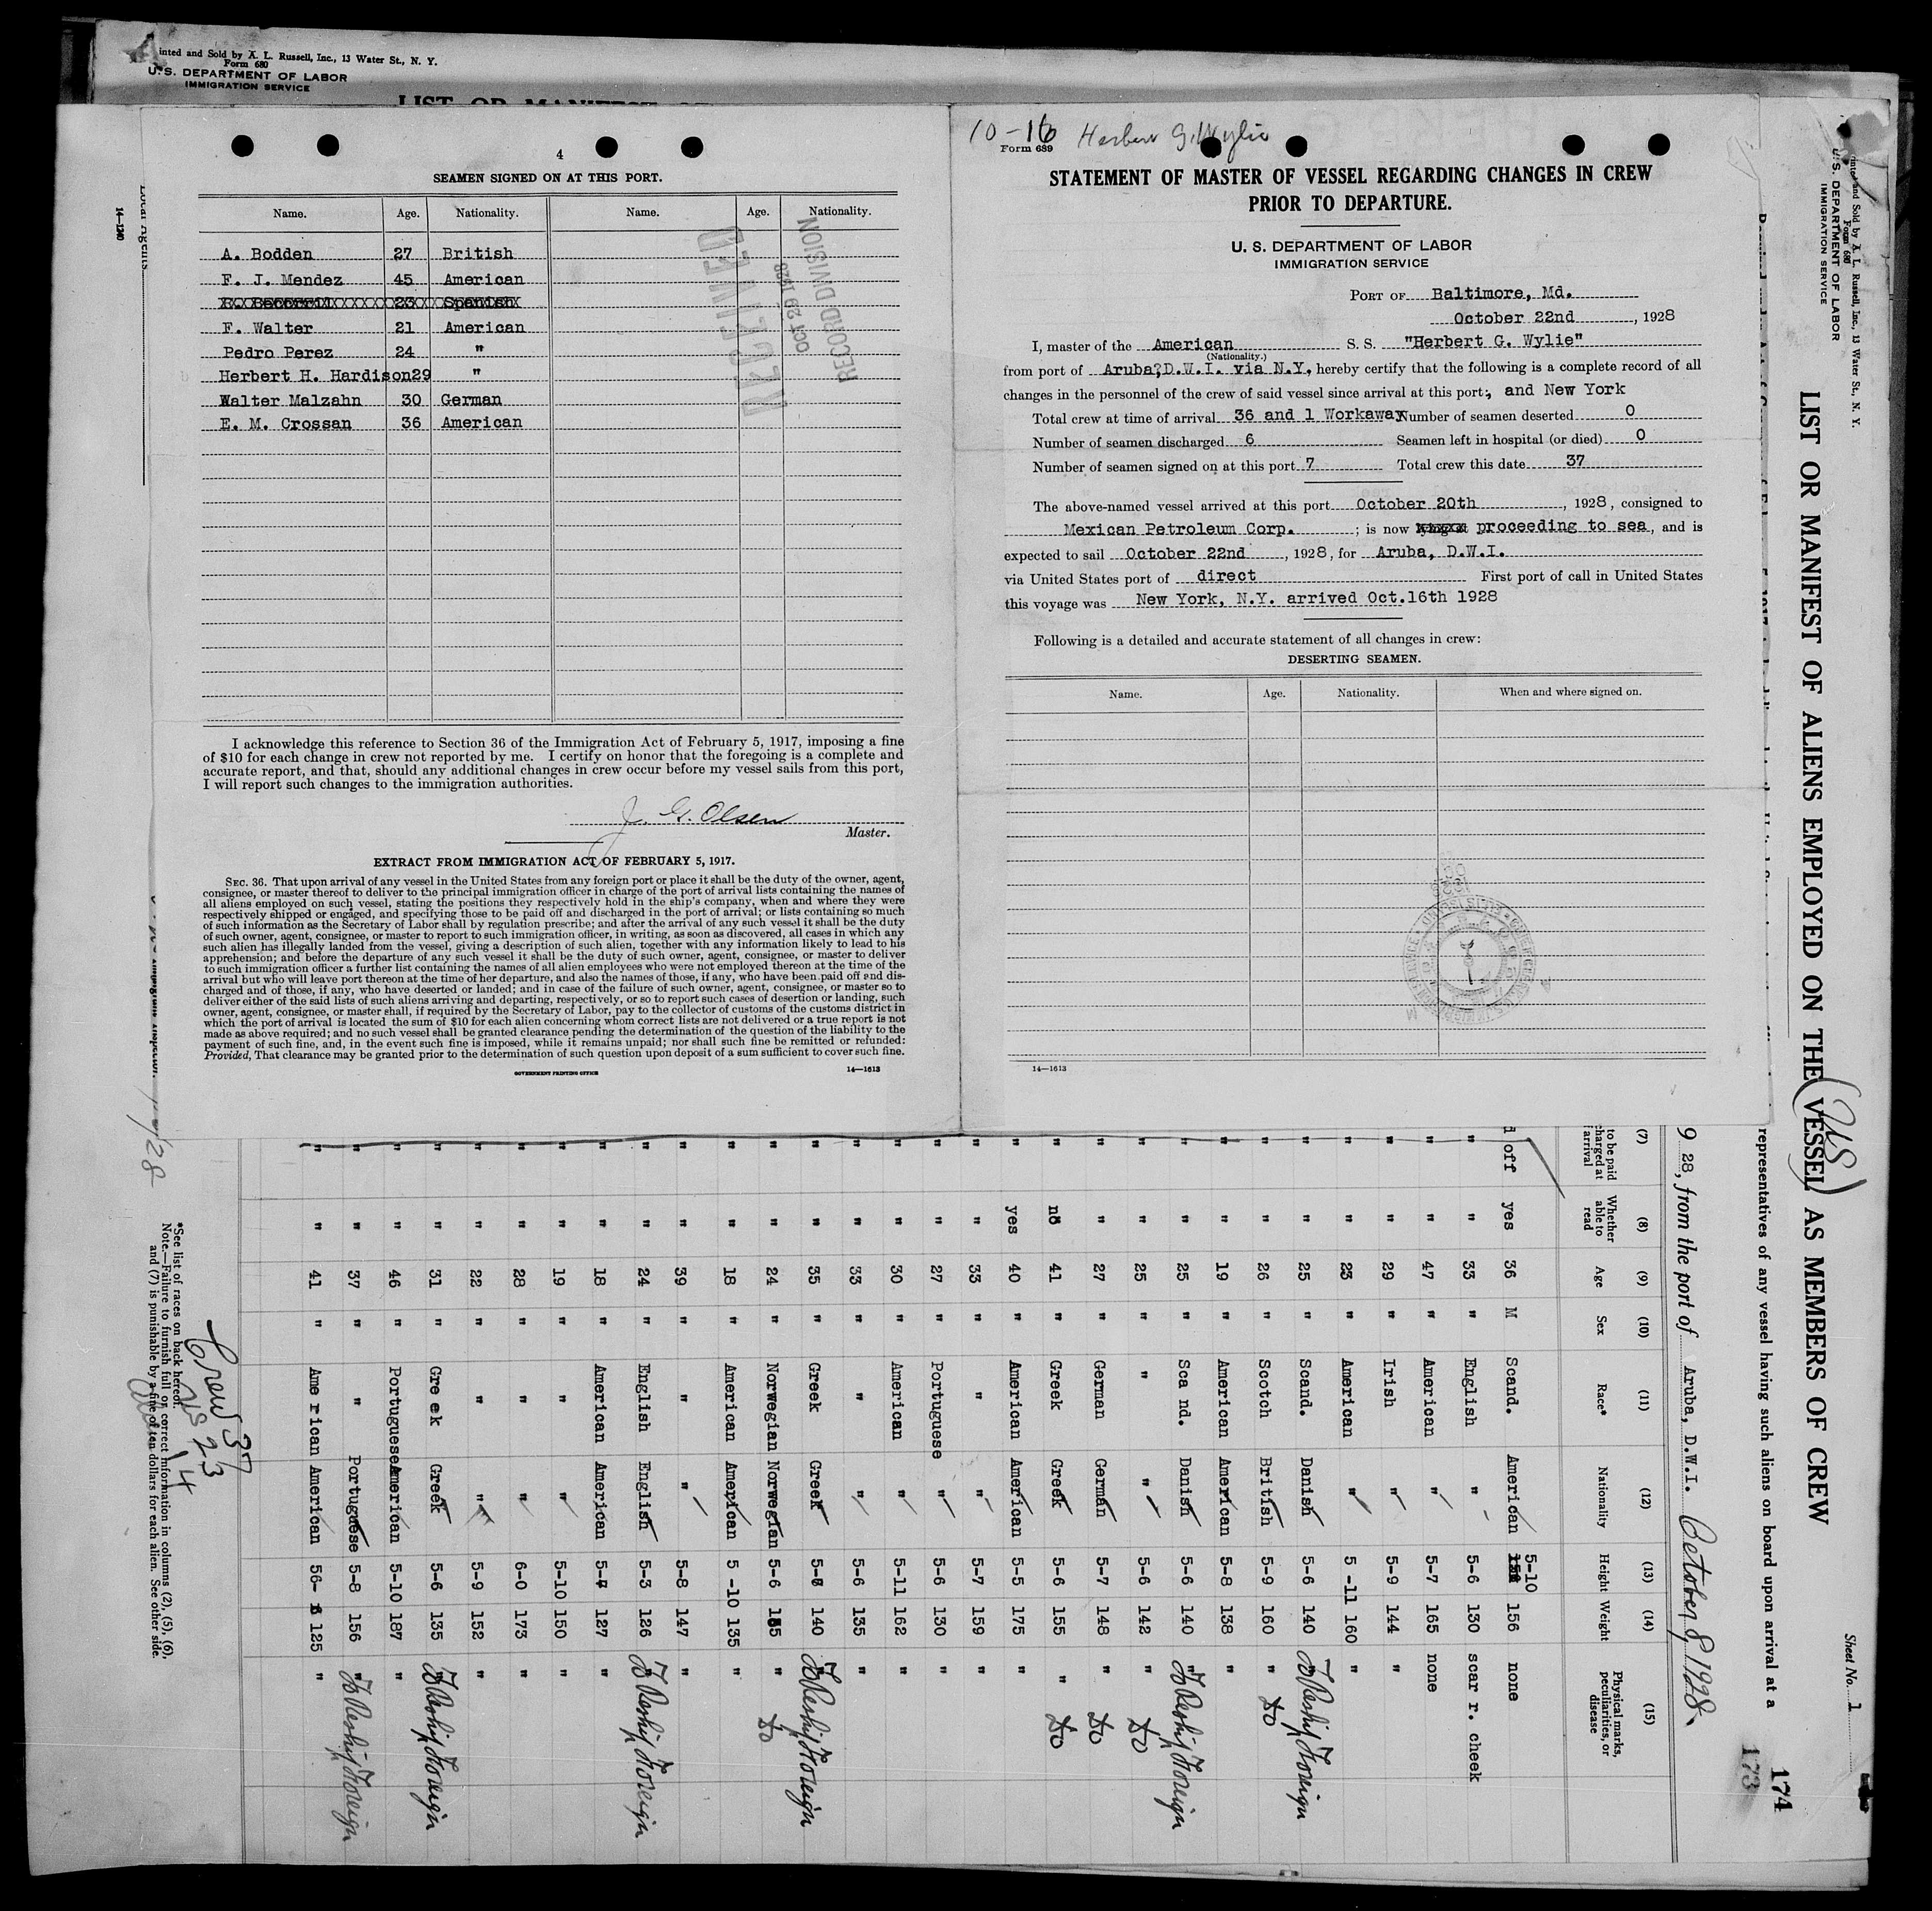 Printed and Sold by A. L. Russell, Inc., 13 Water St., N. Y.
Form 680
U. S. DEPARTMENT OF LABOR
IMMIGRATION SERVICE
4
SEAMEN SIGNED ON AT THIS PORT.
Name. Age. Nationality. Name. Age. Nationality.
A. Bodden 27 British
F. J. Mendez 45 American
23 Spanish
F. Walter 21 American
Pedro Perez 24 "
Herbert H. Hardison 29 "
Walter Malzahn 30 German
E. M. Crossan 36 American
RECEIVED
OCT 29 1928
RECORD DIVISION
I acknowledge this reference to Section 36 of the Immigration Act of February 5, 1917, imposing a fine
of $10 for each change in crew not reported by me. I certify on honor that the foregoing is a complete and
accurate report, and that, should any additional changes in crew occur before my vessel sails from this port,
I will report such changes to the immigration authorities.
J. G. Olsen
Master.
EXTRACT FROM IMMIGRATION ACT OF FEBRUARY 5, 1917.
SEC. 36. That upon arrival of any vessel in the United States from any foreign port or place it shall be the duty of the owner, agent,
consignee, or master thereof to deliver to the principal immigration officer in charge of the port of arrival lists containing the names of
all aliens employed on such vessel, stating the positions they respectively hold in the ship's company, when and where they were
respectively shipped or engaged, and specifying those to be paid off and discharged in the port of arrival; or lists containing so much
of such information as the Secretary of Labor shall by regulation prescribe; and after the arrival of any such vessel it shall be the duty
of such owner, agent, consignee, or master to report to such immigration officer, in writing, as soon as discovered, all cases in which any
such alien has illegally landed from the vessel, giving a description of such alien, together with any information likely to lead to his
apprehension; and before the departure of any such vessel it shall be the duty of such owner, agent, consignee, or master to deliver
to such immigration officer a further list containing the names of all alien employees who were not employed thereon at the time of the
arrival but who will leave port thereon at the time of her departure, and also the names of those, if any, who have been paid off and dis-
charged and of those, if any, who have deserted or landed; and in case of the failure of such owner, agent, consignee, or master so to
deliver either of the said lists of such aliens arriving and departing, respectively, or so to report such cases of desertion or landing, such
owner, agent, consignee, or master shall, if required by the Secretary of Labor, pay to the collector of customs of the customs district in
which the port of arrival is located the sum of $10 for each alien concerning whom correct lists are not delivered or a true report is not
made as above required; and no such vessel shall be granted clearance pending the determination of the question of the liability to the
payment of such fine, and, in the event such fine is imposed, while it remains unpaid; nor shall such fine be remitted or refunded:
Provided, That clearance may be granted prior to the determination of such question upon deposit of a sum sufficient to cover such fine.
GOVERNMENT PRINTING OFFICE
14—1613
10-16 Herbert G. Wylie
Form 689
STATEMENT OF MASTER OF VESSEL REGARDING CHANGES IN CREW
PRIOR TO DEPARTURE.
U. S. DEPARTMENT OF LABOR
IMMIGRATION SERVICE
PORT OF Baltimore, Md.
October 22nd, 1928
I, master of the American S. S. "Herbert G. Wylie"
(Nationality.)
from port of Aruba, D.W.I. via N.Y. hereby certify that the following is a complete record of all
changes in the personnel of the crew of said vessel since arrival at this port:, and New York
Total crew at time of arrival 36 and 1 Workaway Number of seamen deserted 0
Number of seamen discharged 6 Seamen left in hospital (or died) 0
Number of seamen signed on at this port 7 Total crew this date 37
The above-named vessel arrived at this port October 20th, 1928, consigned to
Mexican Petroleum Corp.; is now proceeding to sea, and is
expected to sail October 22nd, 1928, for Aruba, D.W.I.
via United States port of direct First port of call in United States
this voyage was New York, N.Y. arrived Oct.16th 1928
Following is a detailed and accurate statement of all changes in crew:
DESERTING SEAMEN.
Name. Age. Nationality. When and where signed on.
14—1613
Printed and Sold by A. L. Russell, Inc., 13 Water St., N. Y.
Form 680
U. S. DEPARTMENT OF LABOR
IMMIGRATION SERVICE
Sheet No. 1
LIST OR MANIFEST OF ALIENS EMPLOYED ON THE VESSEL AS MEMBERS OF CREW
(US)
174
173
representatives of any vessel having such aliens on board upon arrival at a
9 28, from the port of Aruba, D.W.I. October 8, 1928
(7) (8) (9) (10) (11) (12) (13) (14) (15)
to be paid charged at arrival Whether able to read Age Sex Race* Nationality Height Weight Physical marks, peculiarities, or disease
d off yes 36 M Scand. American 5-10 156 none
" " 33 " English " 5-6 130 scar r. cheek
" " 47 " American " 5-7 165 none
" " 29 " Irish " 5-9 144 "
" " 23 " American " 5-11 160 "
" " 25 " Scand. Danish 5-6 140 " To Reship Foreign
" " 26 " Scotch British 5-9 160 " Do
" " 19 " American American 5-8 138 "
" " 25 " Scand. Danish 5-6 140 " To Reship Foreign
" " 25 " " " 5-6 142 " Do
" " 27 " German German 5-7 148 " Do
" no 41 " Greek Greek 5-6 155 " Do
" yes 40 " American American 5-5 175 "
" " 33 " " " 5-7 159 "
" " 27 " Portuguese " 5-6 130 "
" " 30 " American " 5-11 162 "
" " 33 " " " 5-6 135 "
" " 35 " Greek Greek 140 " To Reship Foreign
" " 24 " Norwegian Norwegian 5-6 " Do
" " 18 " American American 5-10 135 "
" " 39 " " " 5-8 147 "
" " 24 " English English 5-3 126 " To Reship Foreign
" " 18 " American American 127 "
" " 19 " " " 5-10 150 "
" " 28 " " " 6-0 173 "
" " 22 " " " 5-9 152 "
" " 31 " Greek Greek 5-6 135 " To Reship Foreign
" " 46 " Portuguese American 5-10 187 "
" " 37 " " Portuguese 5-8 156 " To Reship Foreign
" " 41 " American American 125 "
*See list of races on back hereof.
Note.—Failure to furnish full or correct information in columns (2), (5), (6),
and (7) is punishable by a fine of ten dollars for each alien. See other side.
Crew 37
US 23
14
Local Agents
14—1240